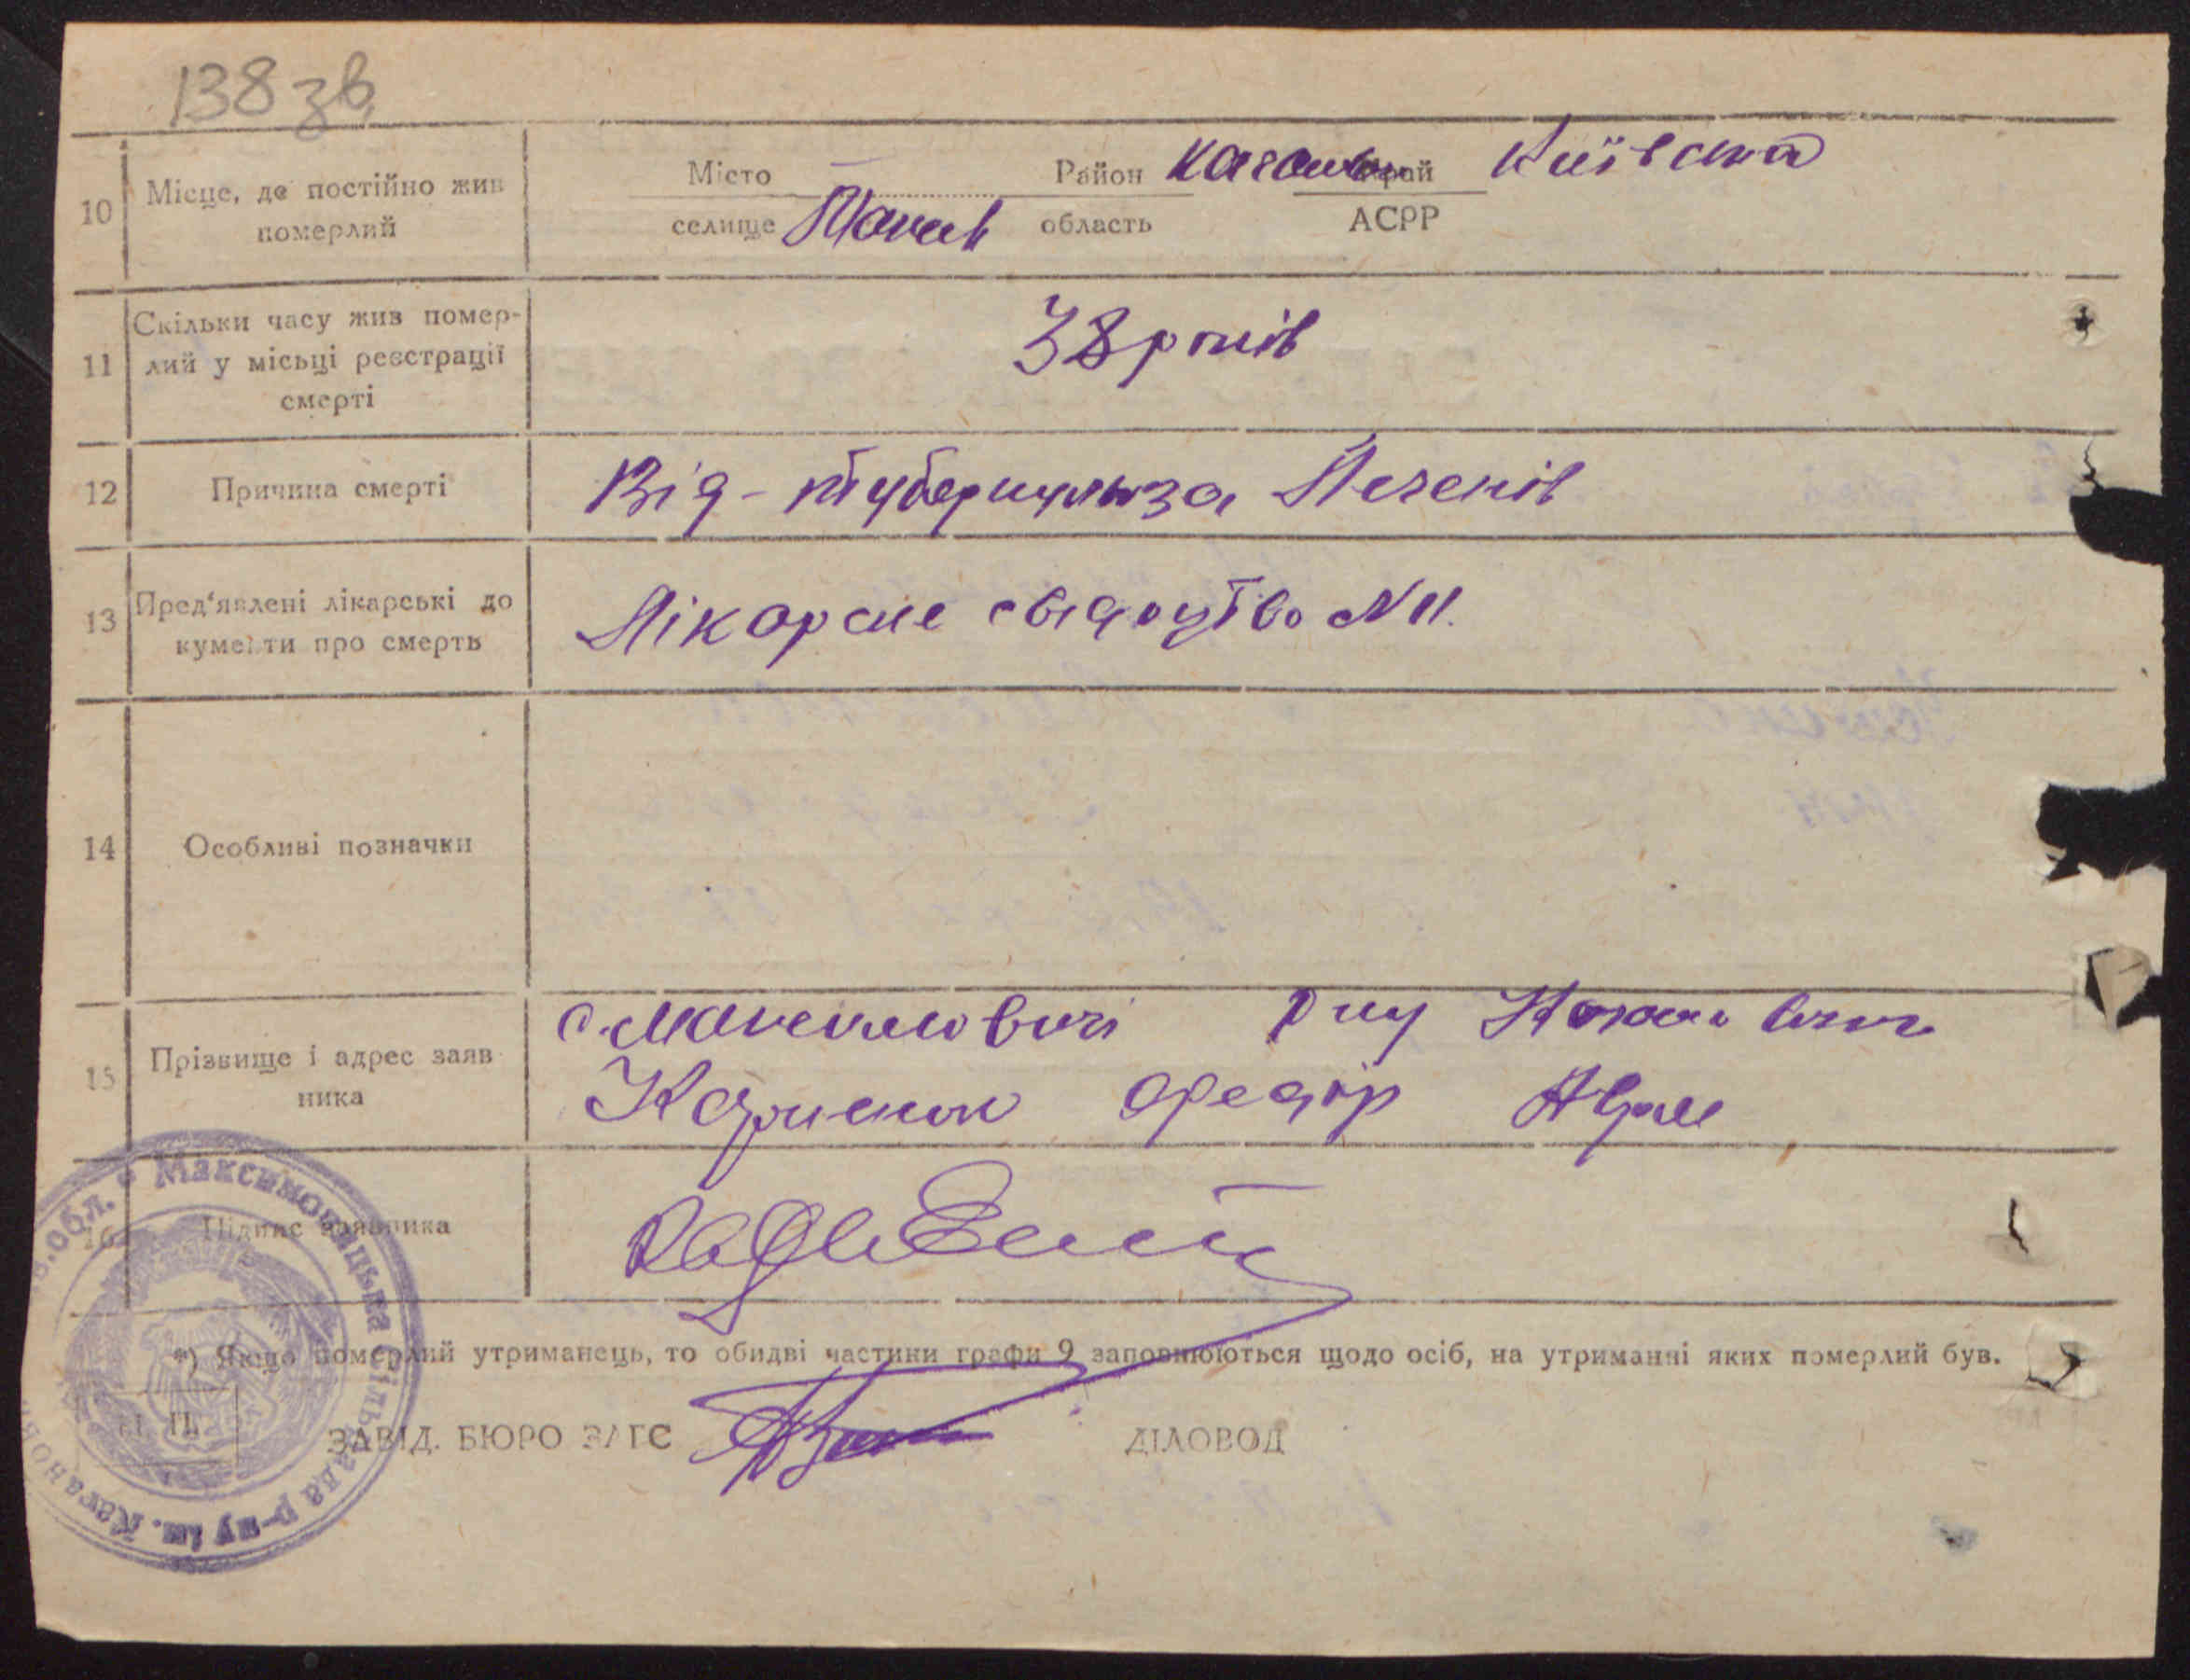 138 зв
10 Місце, де постійно жив померлий
Місто — Район Каганов. Край Київська
селище область АСРР
11 Скільки часу жив помер-
лий у місьці реєстрації
смерті
38 років
12 Причина смерті
Від - туберкульоза Легенів
13 Пред‘явлені лікарські до
кументи про смерть
Лікарське свідоцтво N 11.
14 Особливі позначки
15 Прізвище і адрес заяв
ника
с. Максимовичі р-ну
Федір
16 Підпис заявника
*) Якщо померлий утриманець, то обидві частини графи 9 заповнюються щодо осіб, на утриманні яких померлий був.
М. П.
ЗАВІД. БЮРО ЗАГС ДІЛОВОД
обл. * Максимовицька сільрада р-ну ім. Кагановича